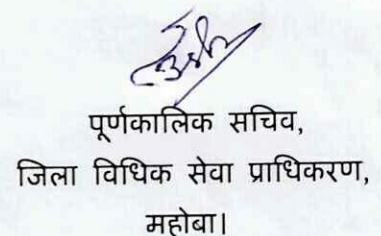 पूर्णकालिक सचिव,
जिला विधिक सेवा प्राधिकरण,
महोबा।